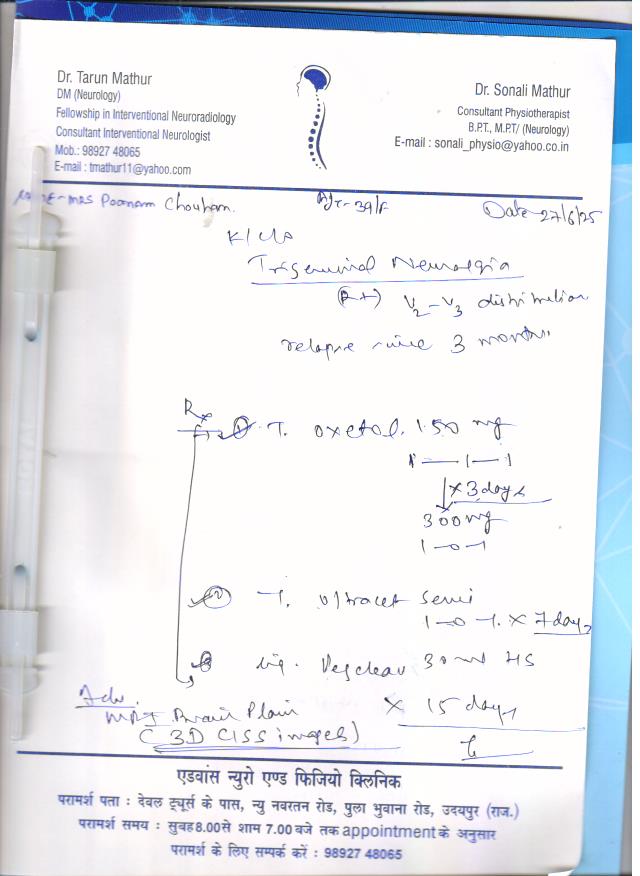 Dr. Tarun Mathur
DM (Neurology)
Fellowship in Interventional Neuroradiology
Consultant Interventional Neurologist
Mob.: 98927 48065
E-mail : tmathur11@yahoo.com
Dr. Sonali Mathur
Consultant Physiotherapist
B.P.T., M.P.T/ (Neurology)
E-mail : sonali_physio@yahoo.co.in
Name - Mrs Poonam Chouhan. Age - 39/F Date - 27/6/25
K/c/o
Trigeminal Neuralgia
(Rt) V2-V3 distribution
relapse since 3 months
Rx
① T. oxetol. 150 mg
1—1—1
↓ x 3 days
300 mg
1-0-1
② T. Ultracet semi
1-0-1. x 7 days
③ liq. 30 ml HS
x 15 days
Adv.
MRI Brain Plain
(3D CISS images)
एडवांस न्युरो एण्ड फिजियो क्लिनिक
परामर्श पता : देवल ट्यूर्स के पास, न्यु नवरतन रोड, पुला भुवाना रोड, उदयपुर (राज.)
परामर्श समय : सुबह8.00से शाम 7.00 बजे तक appointment के अनुसार
परामर्श के लिए सम्पर्क करें : 98927 48065